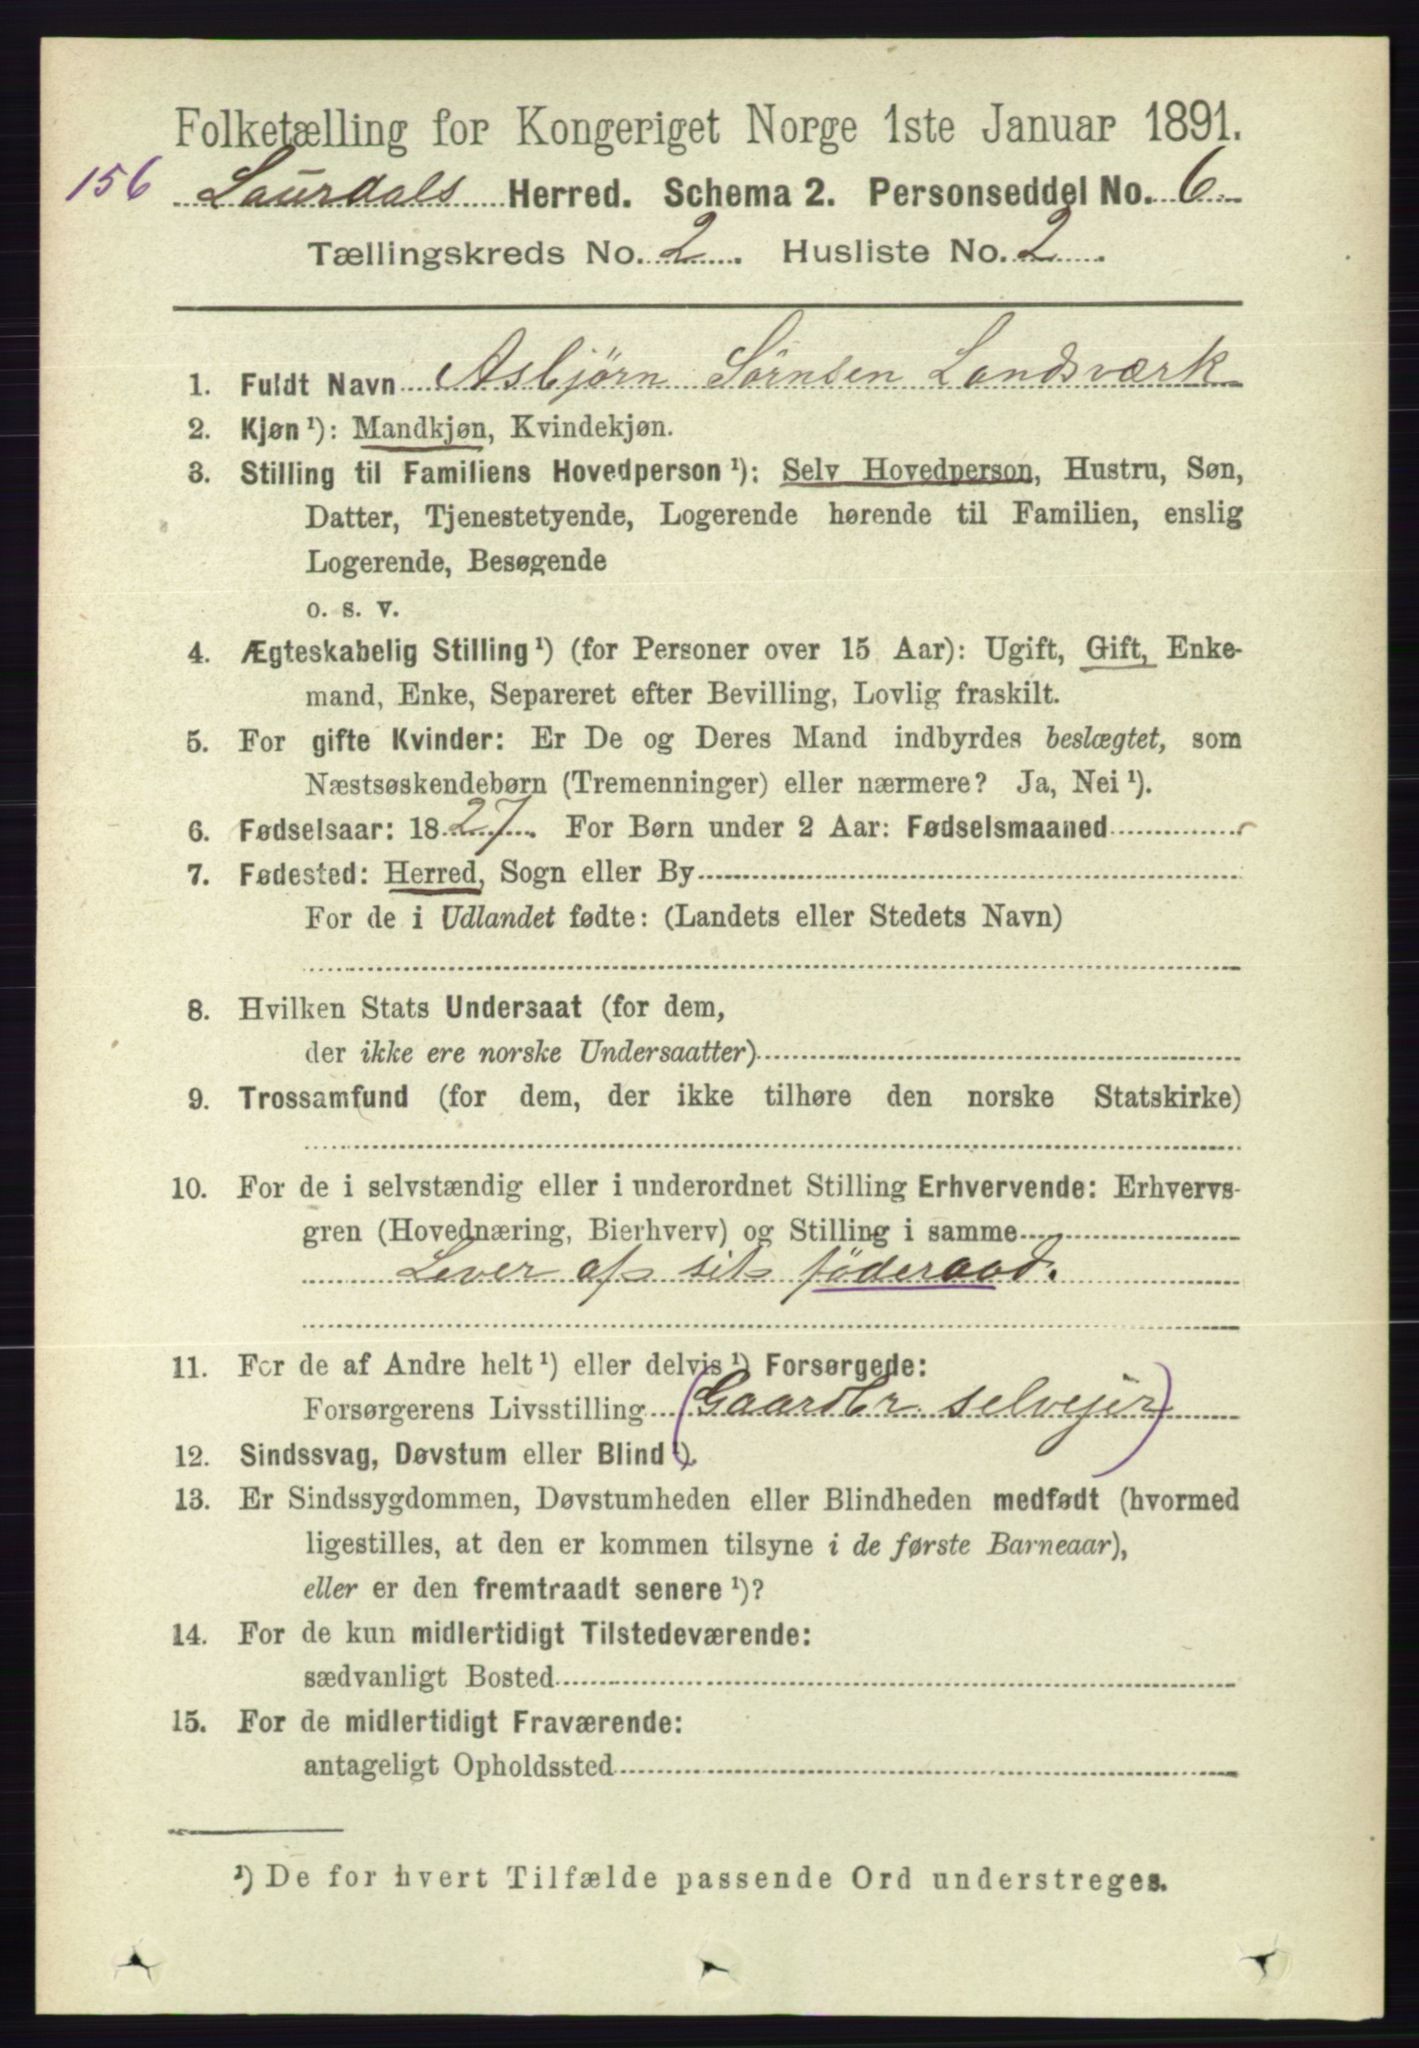 Folketælling for Kongeriget Norge 1ste Januar 1891.
156 Laurdals Herred. Schema 2. Personseddel No. 6
Tællingskreds No. 2. Husliste No. 2.
1. Fuldt Navn Asbjørn Sørnsen Landsværk
2. Kjøn¹): Mandkjøn, Kvindekjøn.
3. Stilling til Familiens Hovedperson¹): Selv Hovedperson, Hustru, Søn,
Datter, Tjenestetyende, Logerende hørende til Familien, enslig
Logerende, Besøgende
o. s. v.
4. Ægteskabelig Stilling¹) (for Personer over 15 Aar): Ugift, Gift, Enke-
mand, Enke, Separeret efter Bevilling, Lovlig fraskilt.
5. For gifte Kvinder: Er De og Deres Mand indbyrdes beslægtet, som
Næstsøskendebørn (Tremenninger) eller nærmere? Ja, Nei¹).
6. Fødselsaar: 1827. For Børn under 2 Aar: Fødselsmaaned
7. Fødested: Herred, Sogn eller By
For de i Udlandet fødte: (Landets eller Stedets Navn)
8. Hvilken Stats Undersaat (for dem,
der ikke ere norske Undersaatter)
9. Trossamfund (for dem, der ikke tilhøre den norske Statskirke)
10. For de i selvstændig eller i underordnet Stilling Erhvervende: Erhvervs-
gren (Hovednæring, Bierhverv) og Stilling i samme
Lever af sit föderaad.
11. For de af Andre helt¹) eller delvis¹) Forsørgede:
Forsørgerens Livsstilling (Gaardbr. selvejer)
12. Sindssvag, Døvstum eller Blind¹).
13. Er Sindssygdommen, Døvstumheden eller Blindheden medfødt (hvormed
ligestilles, at den er kommen tilsyne i de første Barneaar),
eller er den fremtraadt senere¹)?
14. For de kun midlertidigt Tilstedeværende:
sædvanligt Bosted
15. For de midlertidigt Fraværende:
antageligt Opholdssted
¹) De for hvert Tilfælde passende Ord understreges.